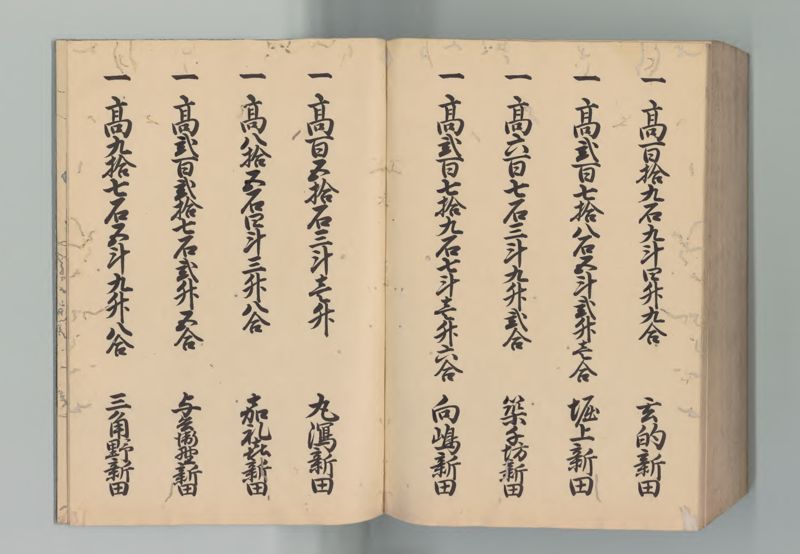 一高百拾九石九斗四升九合 玄的新田
一高弐百七拾八石五斗弐升壱合 堀上新田
一高六百七石三斗九升弐合 築子坊新田
一高弐百七拾九石七斗壱升六合 向嶋新田
一高百五拾石三斗壱升 丸潟新田
一高八拾五石四斗三升八合 嘉礼 新田
一高弐百弐拾七石弐升五合 与 新田
一高九拾七石五斗九升八合 三角野新田